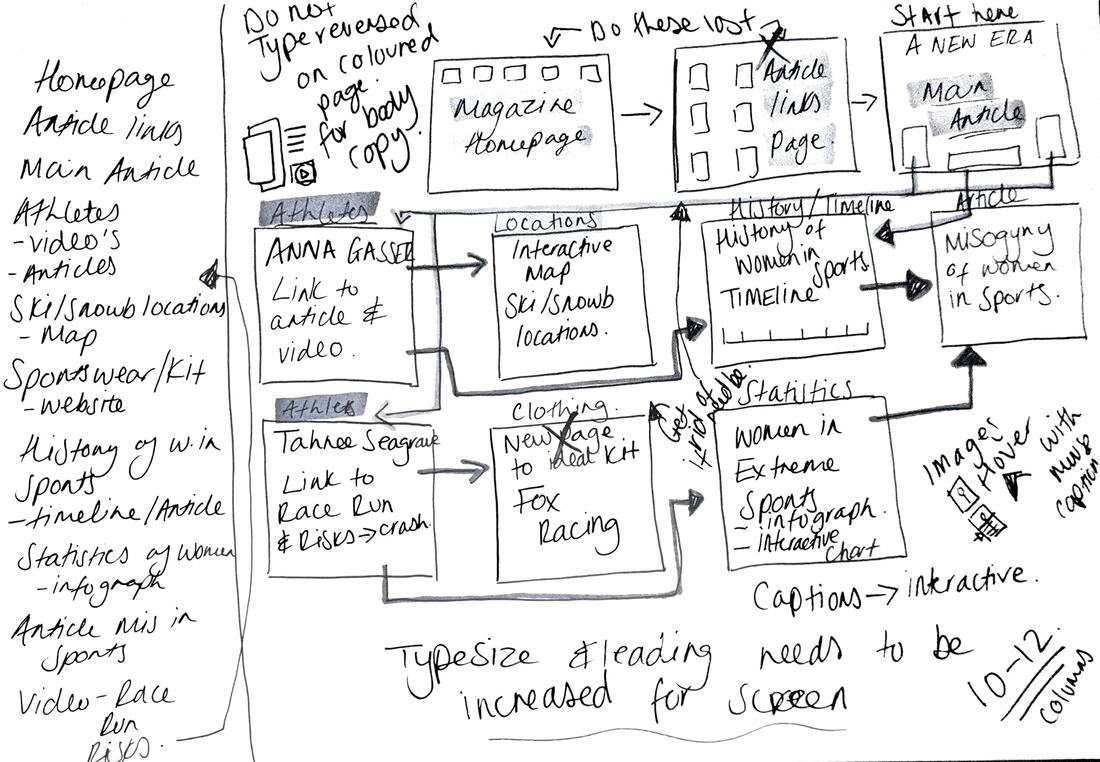 Homepage
Article links
Main Article
Athletes
- video's
- Articles
Ski/Snowb locations
- Map
Sportswear/Kit
- website
History of w.in
Sports
- timeline/Article
Statistics of women
- infograph
Article mis in
Sports
Video - Race
Run
Risks.
Do not
Type reversed
on coloured
page
for body
copy.
Do these last
Magazine
Homepage
Article
links
Page.
Start here
A NEW ERA
Main
Article
Athletes
ANNA GASSER
Link to
article &
video.
Locations
Interactive
Map
Ski/Snowb
locations.
History/Timeline
History of
Women in
Sports
TIMEline
Article
Misogyny
of women
in Sports.
Athletes
Tahnee Seagrave
Link to
Race Run
& Risks → crash.
Clothing.
New page
to ideal Kit
Fox
Racing
Get rid of
if need be.
Statistics
Women in
Extreme
Sports
- infograph.
- Interactive
Chart
Images
Hover
with
mouse
caption
Captions → interactive.
Typesize & leading needs to be
increased for screen
10-12
columns